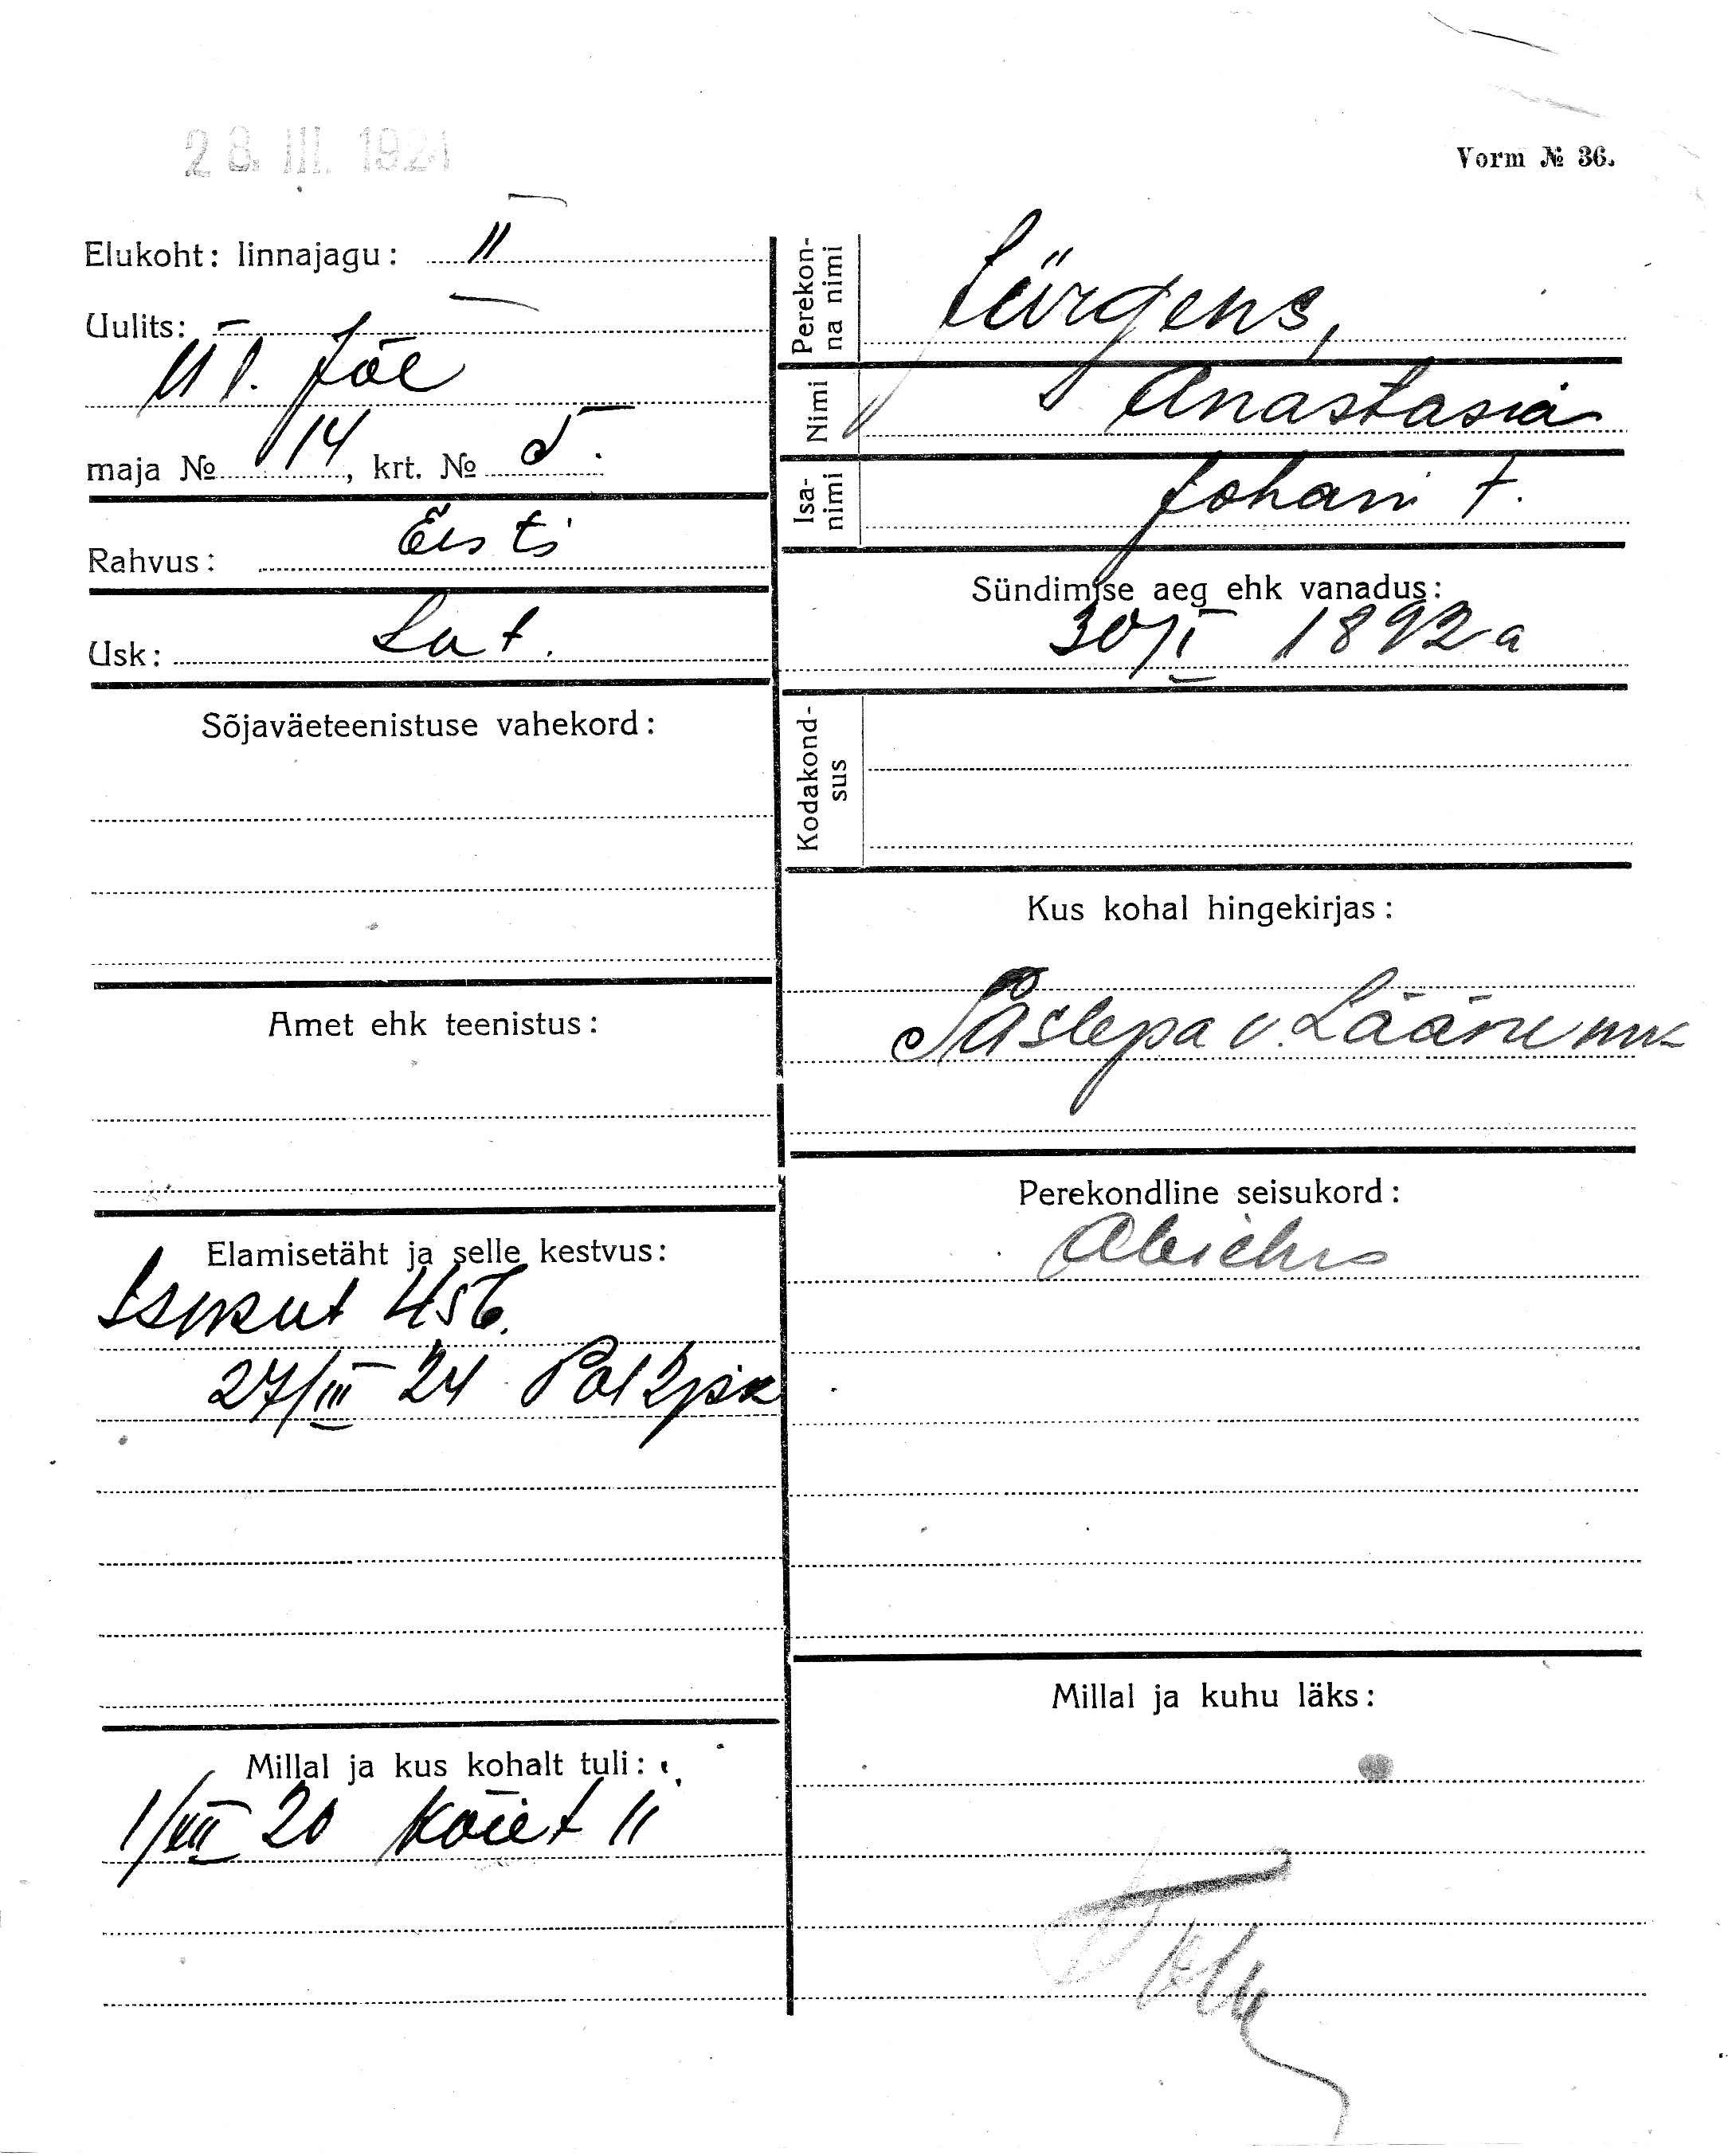 28. III. 1924
Vorm № 36.
Elukoht: linnajagu: II
Uulits:
Jõe
maja № 14, krt. № 5.
Rahvus: Eesti
Usk: Lut.
Sõjaväeteenistuse vahekord:
Amet ehk teenistus:
Elamisetäht ja selle kestvus:
Isikut 456.
27/III 24 Pol 2 jsk
Millal ja kus kohalt tuli:
1/VIII 20 Kõiet 11
Perekonna nimi Jürgens,
Nimi Anastasia
Isanimi Johani t.
Sündimise aeg ehk vanadus:
30/I 1892 a
Kodakondsus
Kus kohal hingekirjas:
v. Lääne mk
Perekondline seisukord:
Abielus
Millal ja kuhu läks: